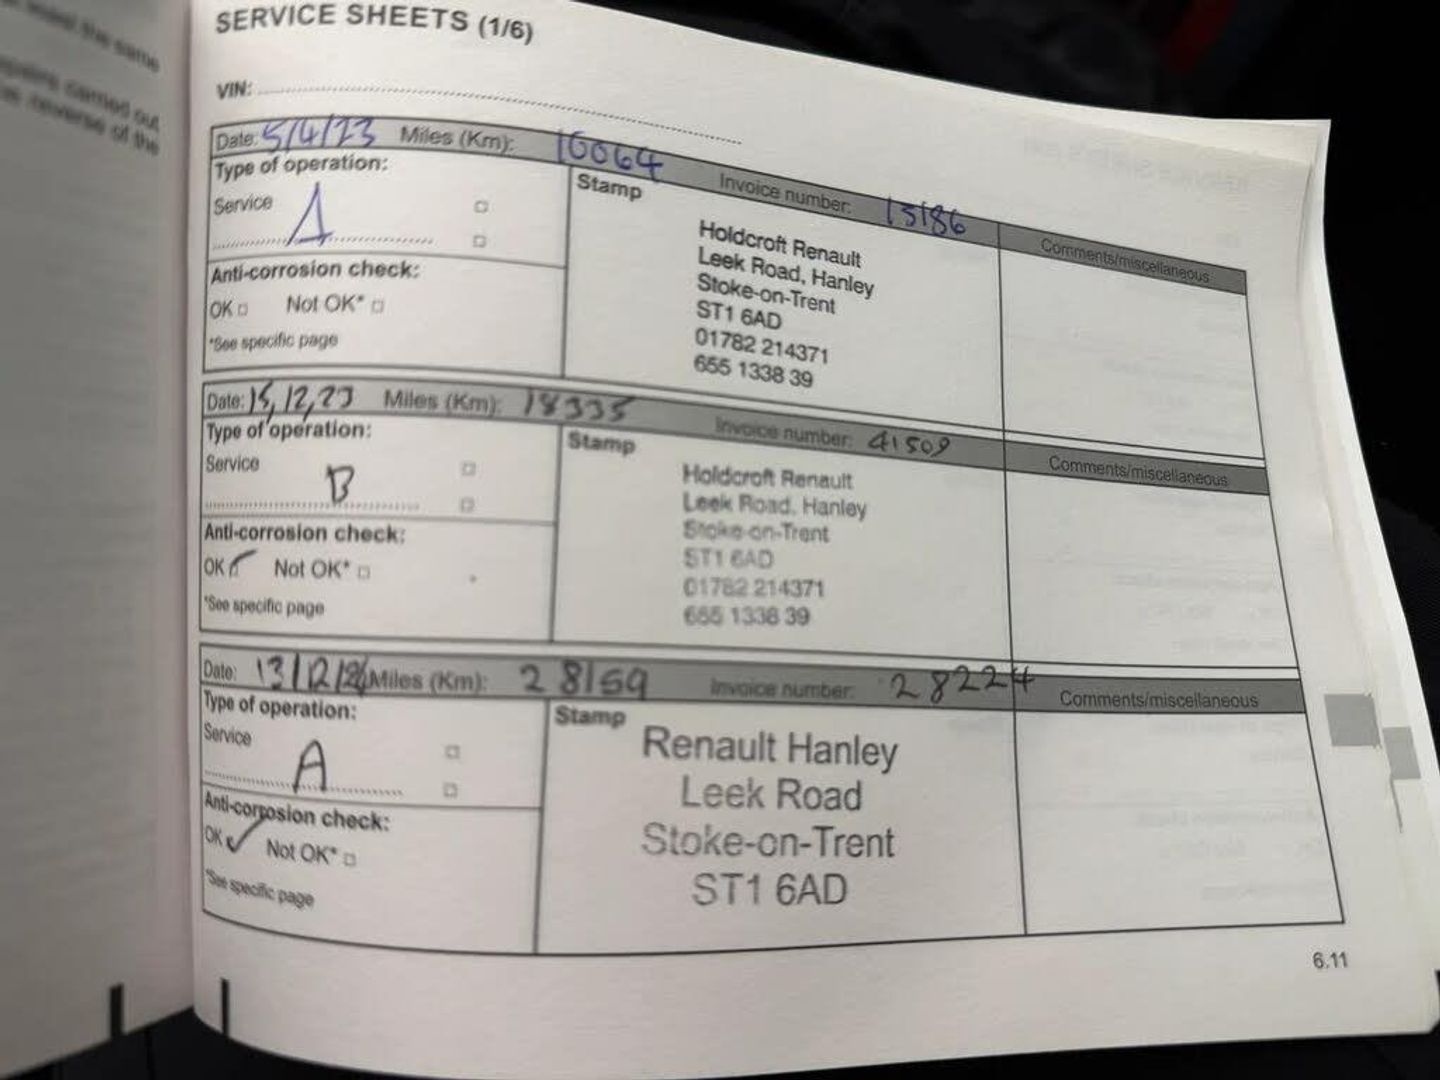 SERVICE SHEETS (1/6)
VIN:
Date: 5/4/23 Miles (Km): 10064 Invoice number: 15186
Comments/miscellaneous
Type of operation:
Service
A
Anti-corrosion check:
OK Not OK*
*See specific page
Stamp
Holdcroft Renault
Leek Road, Hanley
Stoke-on-Trent
ST1 6AD
01782 214371
655 1338 39
Date: 15,12,23 Miles (Km): 18335 Invoice number: 41509
Comments/miscellaneous
Type of operation:
Service
B
Anti-corrosion check:
OK Not OK*
*See specific page
Stamp
Holdcroft Renault
Leek Road, Hanley
Stoke-on-Trent
ST1 6AD
01782 214371
655 1338 39
Date: 13/12/24 Miles (Km): 28159 Invoice number: 28224
Comments/miscellaneous
Type of operation:
Service
A
Anti-corrosion check:
OK Not OK*
*See specific page
Stamp
Renault Hanley
Leek Road
Stoke-on-Trent
ST1 6AD
6.11